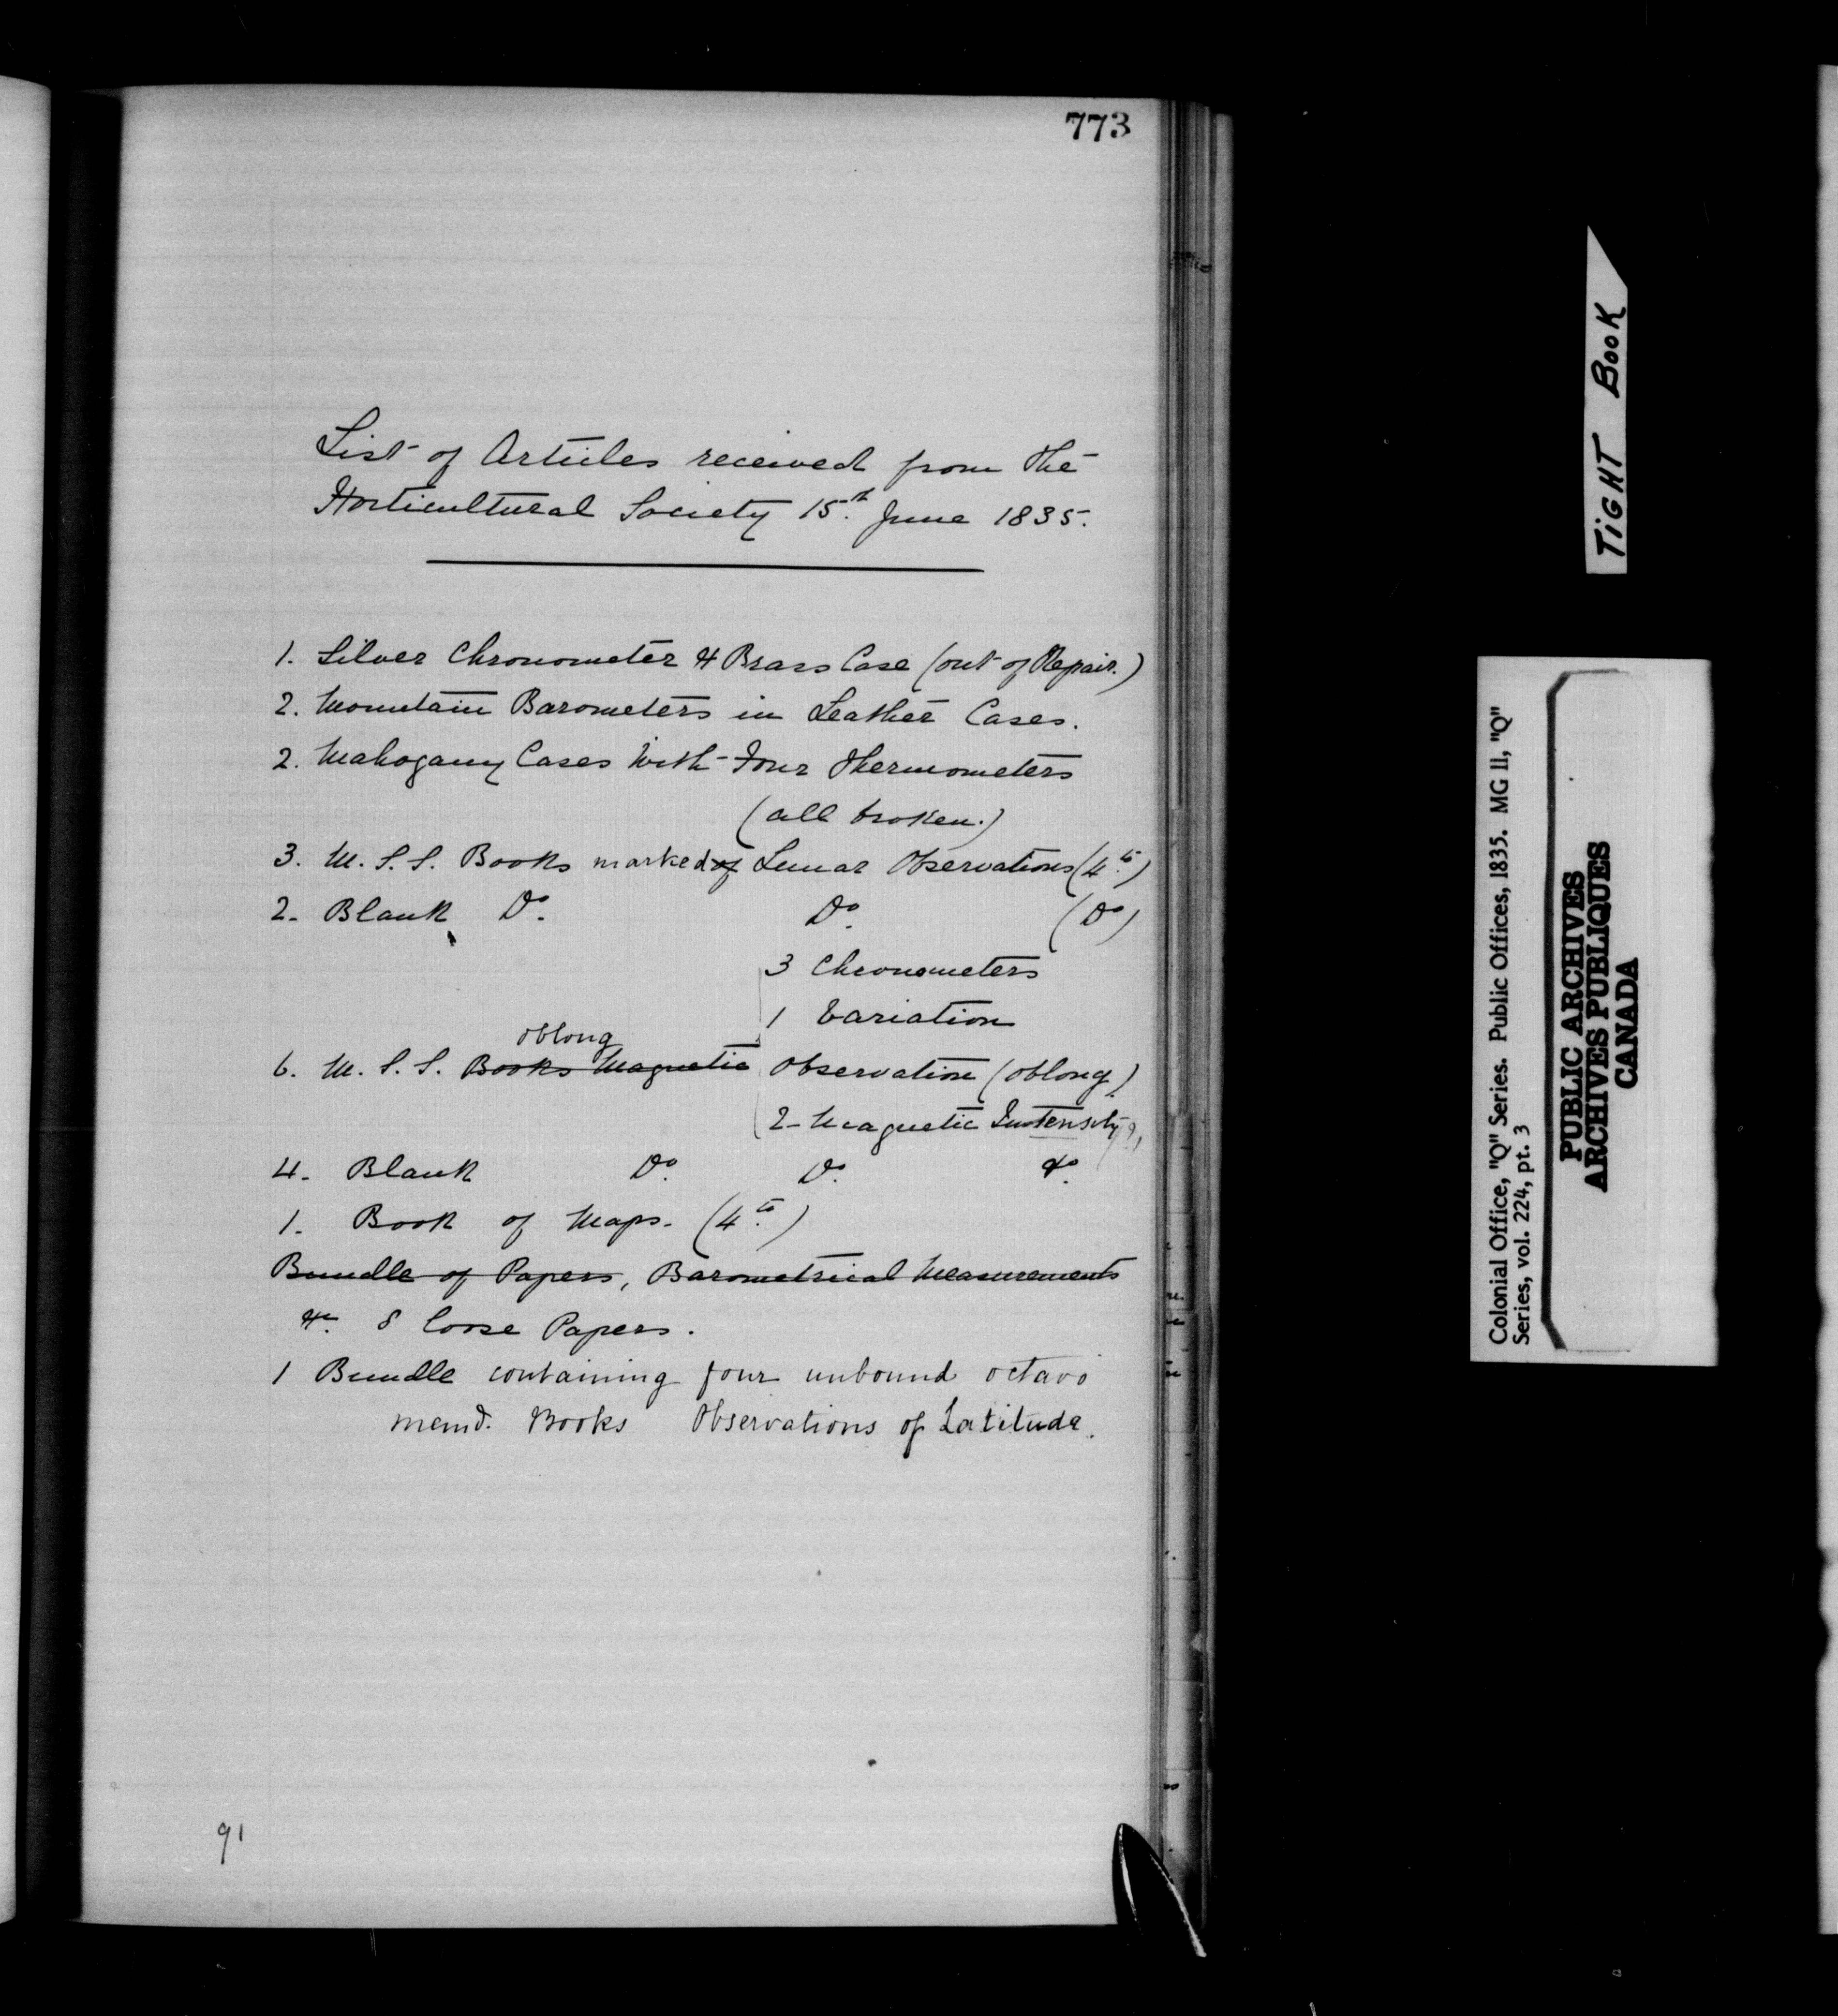 773
List of Articles received from the
Horticultural Society 15th. June 1835.
1. Silver Chronometer & Brass Case (out of Repair.)
2. Mountain Barometers in Leather Cases.
2. Mahogany Cases with Four Thermometers
(all broken.)
3. M.S.S. Books marked of Lunar Observations (4to.)
2. Blank Do. Do. (Do)
3 Chronometers
1 Variation
oblong
6. M.S.S. Books Magnetic Observation (oblong)
2 Magnetic Intensity
4. Blank Do. Do. do.
1. Book of Maps. (4to.)
Bundle of Papers, Barometrical Measurements
&c. 8 loose Papers.
1 Bundle containing four unbound octavo
memd. Books Observations of Latitude.
91
TIGHT BOOK
Colonial Office, "Q" Series. Public Offices, 1835. MG 11, "Q"
Series, vol. 224, pt. 3
PUBLIC ARCHIVES
ARCHIVES PUBLIQUES
CANADA